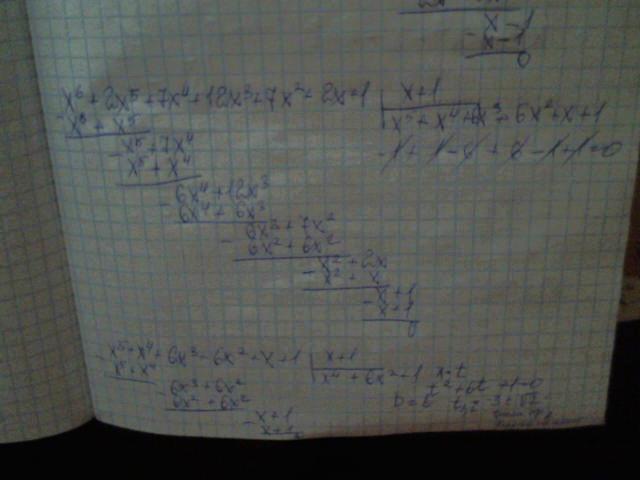 x - 1
- x - 1
0
x⁶ + 2x⁵ + 7x⁴ + 12x³ + 7x² + 2x + 1 | x + 1
- x⁶ + x⁵
x⁵ + x⁴ + 6x³ + 6x² + x + 1
- x⁵ + 7x⁴
x⁵ + x⁴
- 1 + 1 - 6 + 6 - 1 + 1 = 0
- 6x⁴ + 12x³
6x⁴ + 6x³
- 6x³ + 7x²
6x² + 6x²
- x² + 2x
x² + x
- x + 1
x + 1
0
- x⁵ + x⁴ + 6x³ + 6x² + x + 1 | x + 1
x⁵ + x⁴
x⁴ + 6x² + 1
- 6x³ + 6x²
6x² + 6x²
- x + 1
x + 1
t² + 6t + 1 = 0